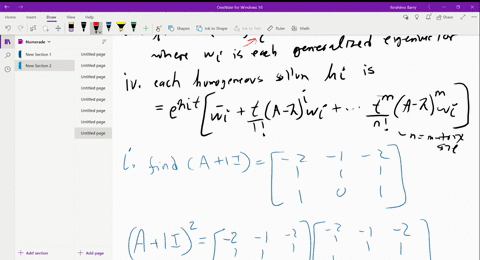 OneNote for Windows 10
Ibrahima Barry
Shapes
Ink to Shape
Ink to Text
Math
Numerade
New Section 1
New Section 2
Untitled page
Untitled page
Untitled page
Untitled page
Untitled page
Untitled page
Untitled page
Add section
Add page
where wi is each generalized eigenvector
iv. each homogeneous solution hi is
= e^{λit} [ w̄i + t/1! (A-λ)^i wi + ... t^m/n! (A-λ)^m wi ]
n = matrix size
i. find (A+1I) = [ -2 -1 -2
1 1 1
1 0 1 ]
(A+1I)² = [ -2 -1 -2 ] [ -2 -1 -2 ]